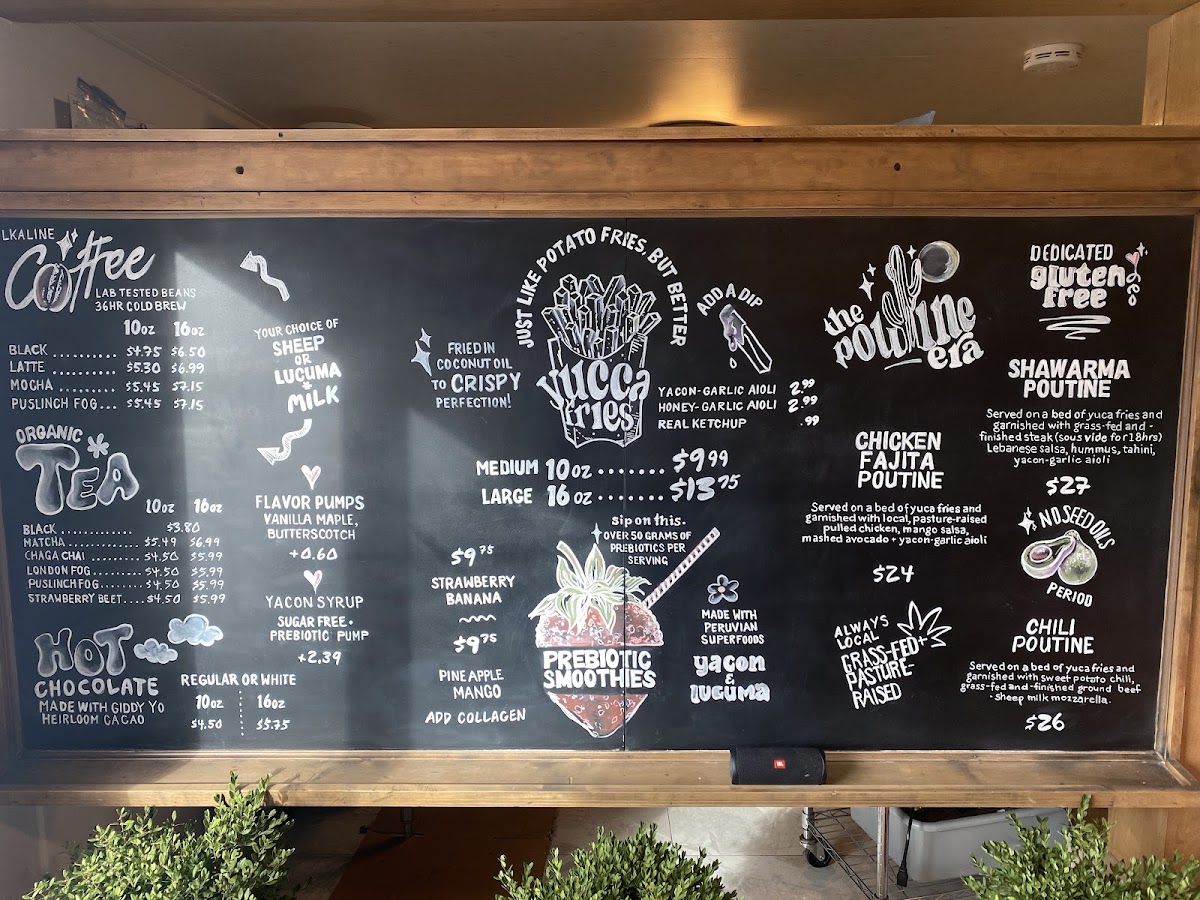 LKALINE
Coffee
LAB TESTED BEANS
36HR COLD BREW
10oz 16oz
BLACK .......... $4.75 $6.50
LATTE .......... $5.30 $6.99
MOCHA .......... $5.45 $7.15
PUSLINCH FOG... $5.45 $7.15
ORGANIC
TEA
10oz 16oz
BLACK .............. $3.80
MATCHA .............. $5.49 $6.99
CHAGA CHAI .......... $4.50 $5.99
LONDON FOG......... $4.50 $5.99
PUSLINCH FOG........ $4.50 $5.99
STRAWBERRY BEET.... $4.50 $5.99
HOT
CHOCOLATE
MADE WITH GIDDY YO
HEIRLOOM CACAO
REGULAR OR WHITE
10oz 16oz
$4.50 $5.75
YOUR CHOICE OF
SHEEP
OR
LUCUMA
MILK
FLAVOR PUMPS
VANILLA MAPLE,
BUTTERSCOTCH
+0.60
YACON SYRUP
SUGAR FREE •
PREBIOTIC PUMP
+2.39
JUST LIKE POTATO FRIES, BUT BETTER
FRIED IN
COCONUT OIL
TO CRISPY
PERFECTION!
yucca
fries
ADD A DIP
YACON-GARLIC AIOLI 2.99
HONEY-GARLIC AIOLI 2.99
REAL KETCHUP .99
MEDIUM 10oz ....... $9.99
LARGE 16oz ....... $13.75
sip on this.
OVER 50 GRAMS OF
PREBIOTICS PER
SERVING
$9.75
STRAWBERRY
BANANA
$9.75
PINEAPPLE
MANGO
ADD COLLAGEN
PREBIOTIC
SMOOTHIES
MADE WITH
PERUVIAN
SUPERFOODS
yacon
&
lucuma
the
poutine
era
CHICKEN
FAJITA
POUTINE
Served on a bed of yuca fries and
garnished with local, pasture-raised
pulled chicken, mango salsa,
mashed avocado + yacon-garlic aioli
$24
ALWAYS
LOCAL
GRASS-FED+
PASTURE-
RAISED
DEDICATED
gluten
free
SHAWARMA
POUTINE
Served on a bed of yuca fries and
garnished with grass-fed and -
finished steak (sous vide for 18hrs)
Lebanese salsa, hummus, tahini,
yacon-garlic aioli
$27
NO SEED OILS
PERIOD
CHILI
POUTINE
Served on a bed of yuca fries and
garnished with sweet potato chili,
grass-fed and -finished ground beef
- sheep milk mozzarella.
$26
JBL